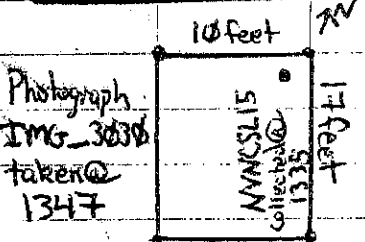 10 feet
N
Photograph
IMG_3030
taken@
1347
NVNCSL15
collected@
1335
17 feet